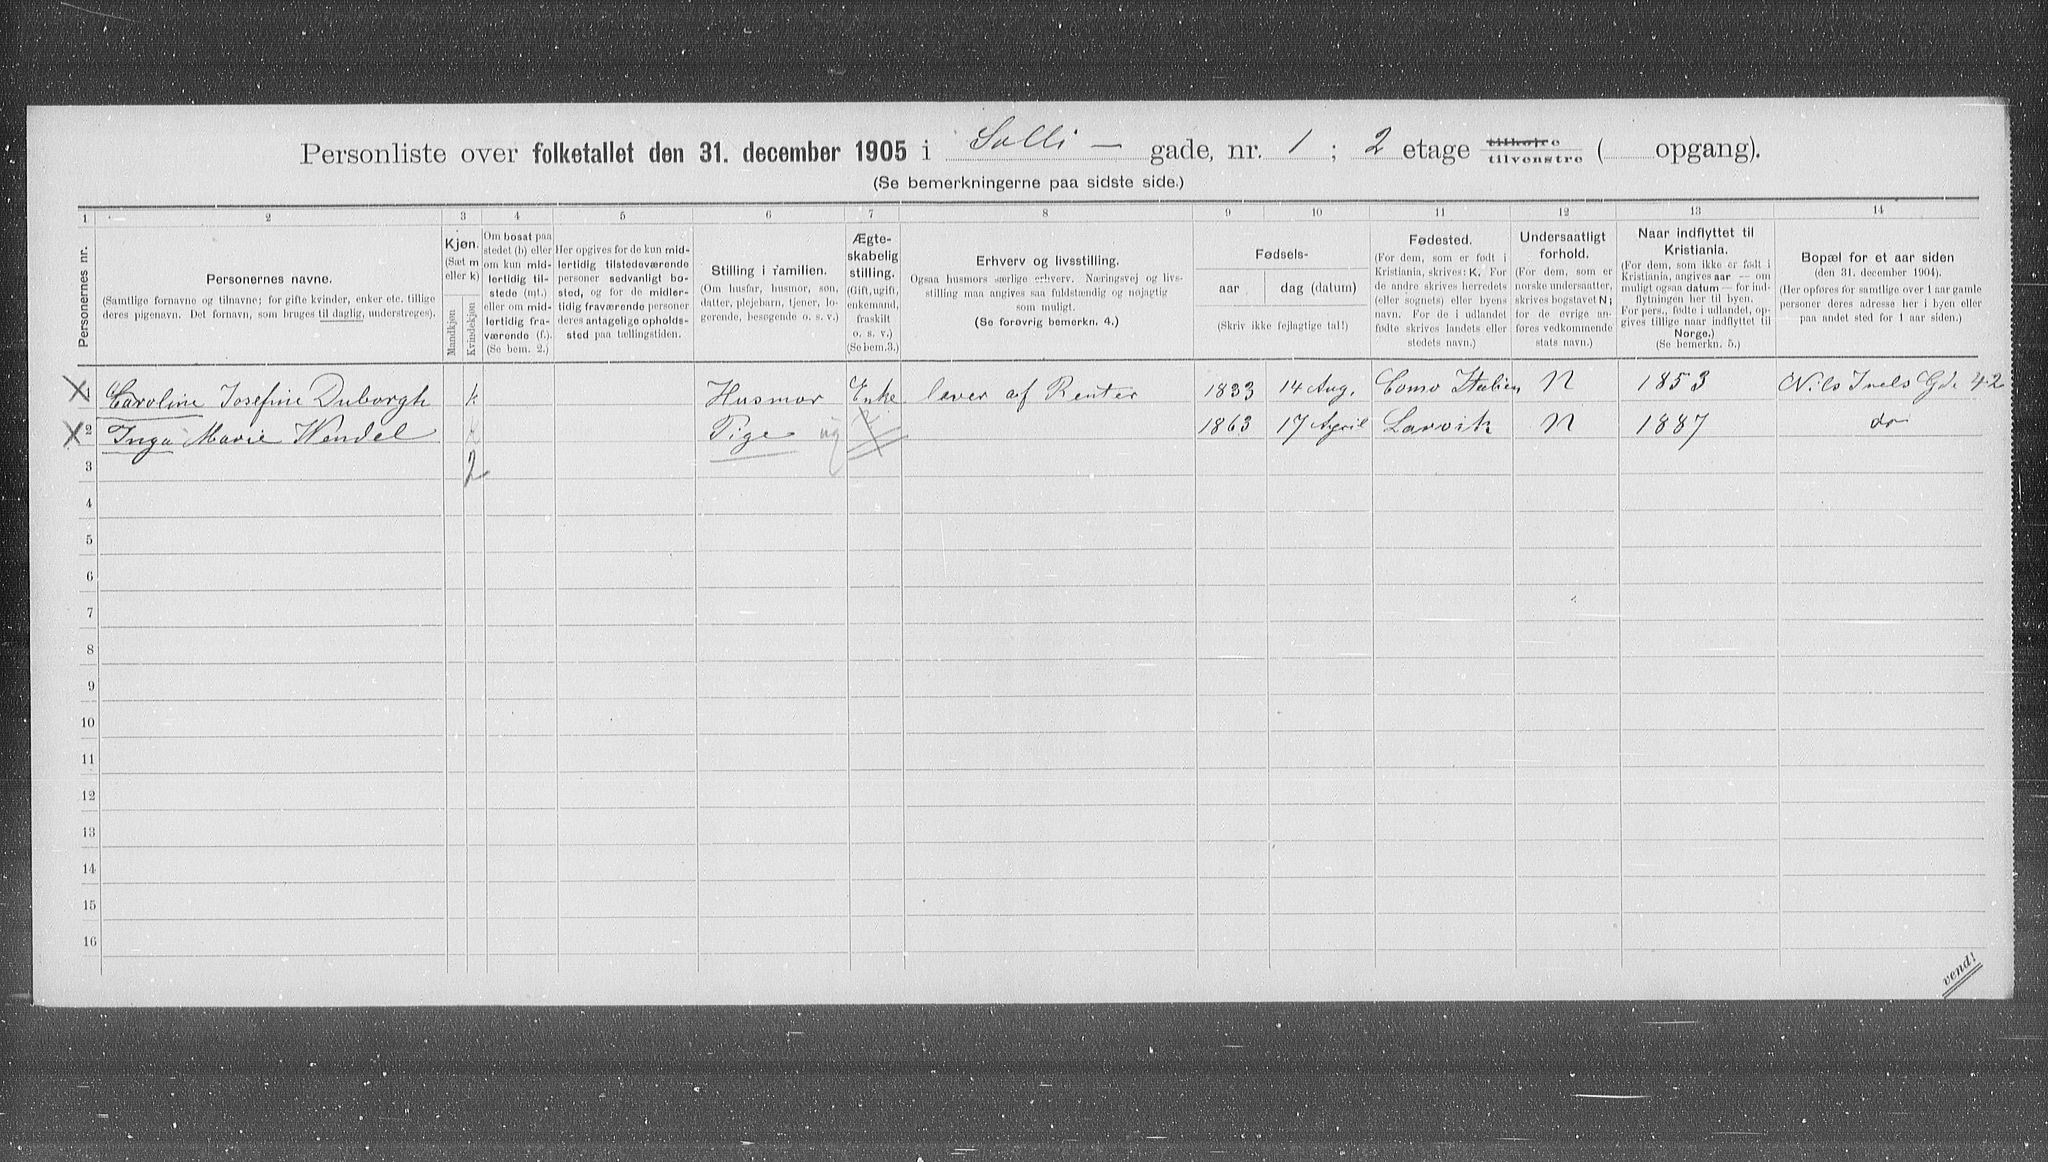 Personliste over folketallet den 31. december 1905 i Solli — gade, nr. 1 ; 2 etage tilhøjre tilvenstre ( opgang).
(Se bemerkningerne paa sidste side.)
1 2 3 4 5 6 7 8 9 10 11 12 13 14
Personernes nr.
Personernes navne.
(Samtlige fornavne og tilnavne; for gifte kvinder, enker etc. tillige
deres pigenavn. Det fornavn, som bruges til daglig, understreges).
Kjøn.
(Sæt m
eller k)
Mandkjøn
Kvindekjøn
Om bosat paa
stedet (b) eller
om kun mid-
lertidig til-
stede (mt.)
eller om mid-
lertidig fra-
værende (f.)
(Se bem. 2.)
Her opgives for de kun mid-
lertidig tilstedeværende
personer sedvanligt bo-
sted, og for de midler-
tidig fraværende personer
deres antagelige opholds-
sted paa tællingstiden.
Stilling i familien.
(Om husfar, husmor, søn,
datter, plejebarn, tjener, lo-
gerende, besøgende o. s. v.)
Ægte-
skabelig
stilling.
(Gift, ugift,
enkemand,
fraskilt
o. s. v.)
(Se bem.3.)
Erhverv og livsstilling.
Ogsaa husmors særlige erhverv. Næringsvej og livs-
stilling maa angives saa fuldstændig og nøjagtig
som muligt.
(Se forøvrig bemerkn. 4.)
Fødsels-
aar
dag (datum)
(Skriv ikke fejlagtige tal!)
Fødested.
(For dem, som er født i
Kristiania, skrives: K. For
de andre skrives herredets
(eller sognets) eller byens
navn. For de i udlandet
fødte skrives landets eller
stedets navn.)
Undersaatligt
forhold.
(For dem, som er
norske undersaatter,
skrives bogstavet N;
for de øvrige an-
føres vedkommende
stats navn.)
Naar indflyttet til
Kristiania.
(For dem, som ikke er født i
Kristiania, angives aar — om
muligt ogsaa datum — for ind-
flytningen her til byen.
For pers., fødte i udlandet, op-
gives tillige naar indflyttet til
Norge.)
(Se bemerkn. 5.)
Bopæl for et aar siden
(den 31. december 1904).
(Her opføres for samtlige over 1 aar gamle
personer deres adresse her i byen eller
paa andet sted for 1 aar siden.)
1 Caroline Josefine Duborgh k Husmor Enke lever af Renter 1833 14 Aug. Como Italien N 1853 Nils Juels Gd. 42
2 Inga Marie Wendel Pige ug 1863 17 April Larvik N 1887 do
3 2
4
5
6
7
8
9
10
11
12
13
14
15
16
vend!